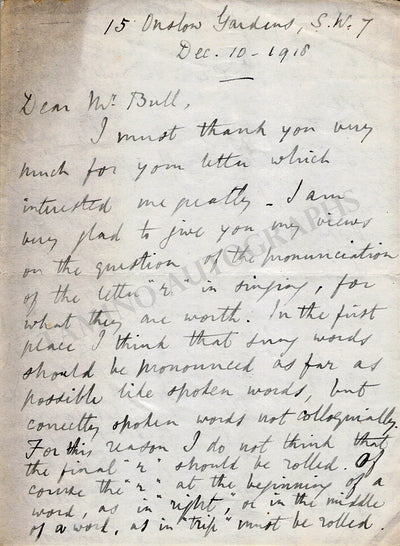 15 Onslow Gardens, S.W. 7
Dec. 10 - 1918
Dear Mr Bull,
I must thank you very
much for your letter which
interested me greatly - I am
very glad to give you my views
on the question of the pronunciation
of the letter "r" in singing, for
what they are worth. In the first
place I think that sung words
should be pronounced as far as
possible like spoken words, but
correctly spoken words not colloquially.
For this reason I do not think that
the final "r" should be rolled. Of
course the "r" at the beginning of a
word, as in "right", or in the middle
of a word, as in "trip" must be rolled.